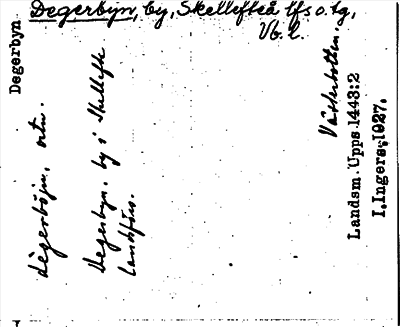 Degerbyn, by, Skellefteå lfs o. tg,
Vb. l.
Degerbyn
ortn.
Degerbyn, by i Skellefte
landsförs.
Västerbotten.
Landsm. Upps. 1443:2
I. Ingers, 1927.